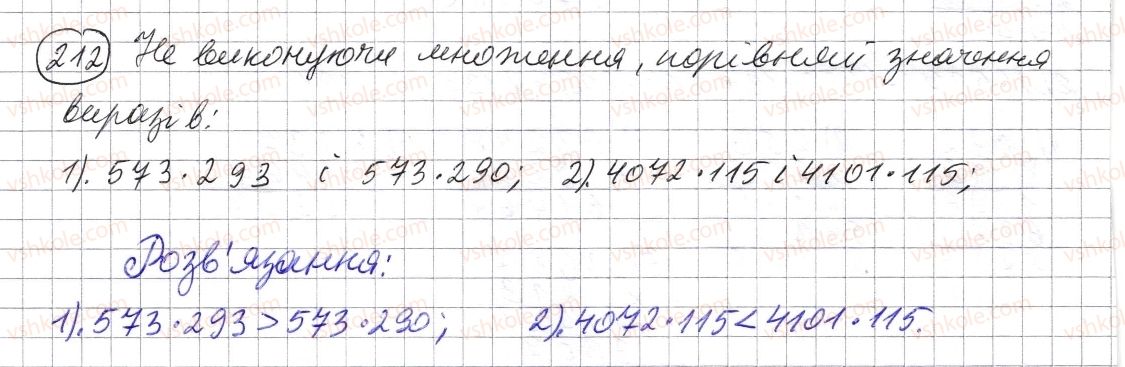 212 Не виконуючи множення, порівняй значення
виразів:
1). 573·293 і 573·290; 2). 4072·115 і 4101·115;
Розв'язання:
1). 573·293 > 573·290; 2). 4072·115 < 4101·115.